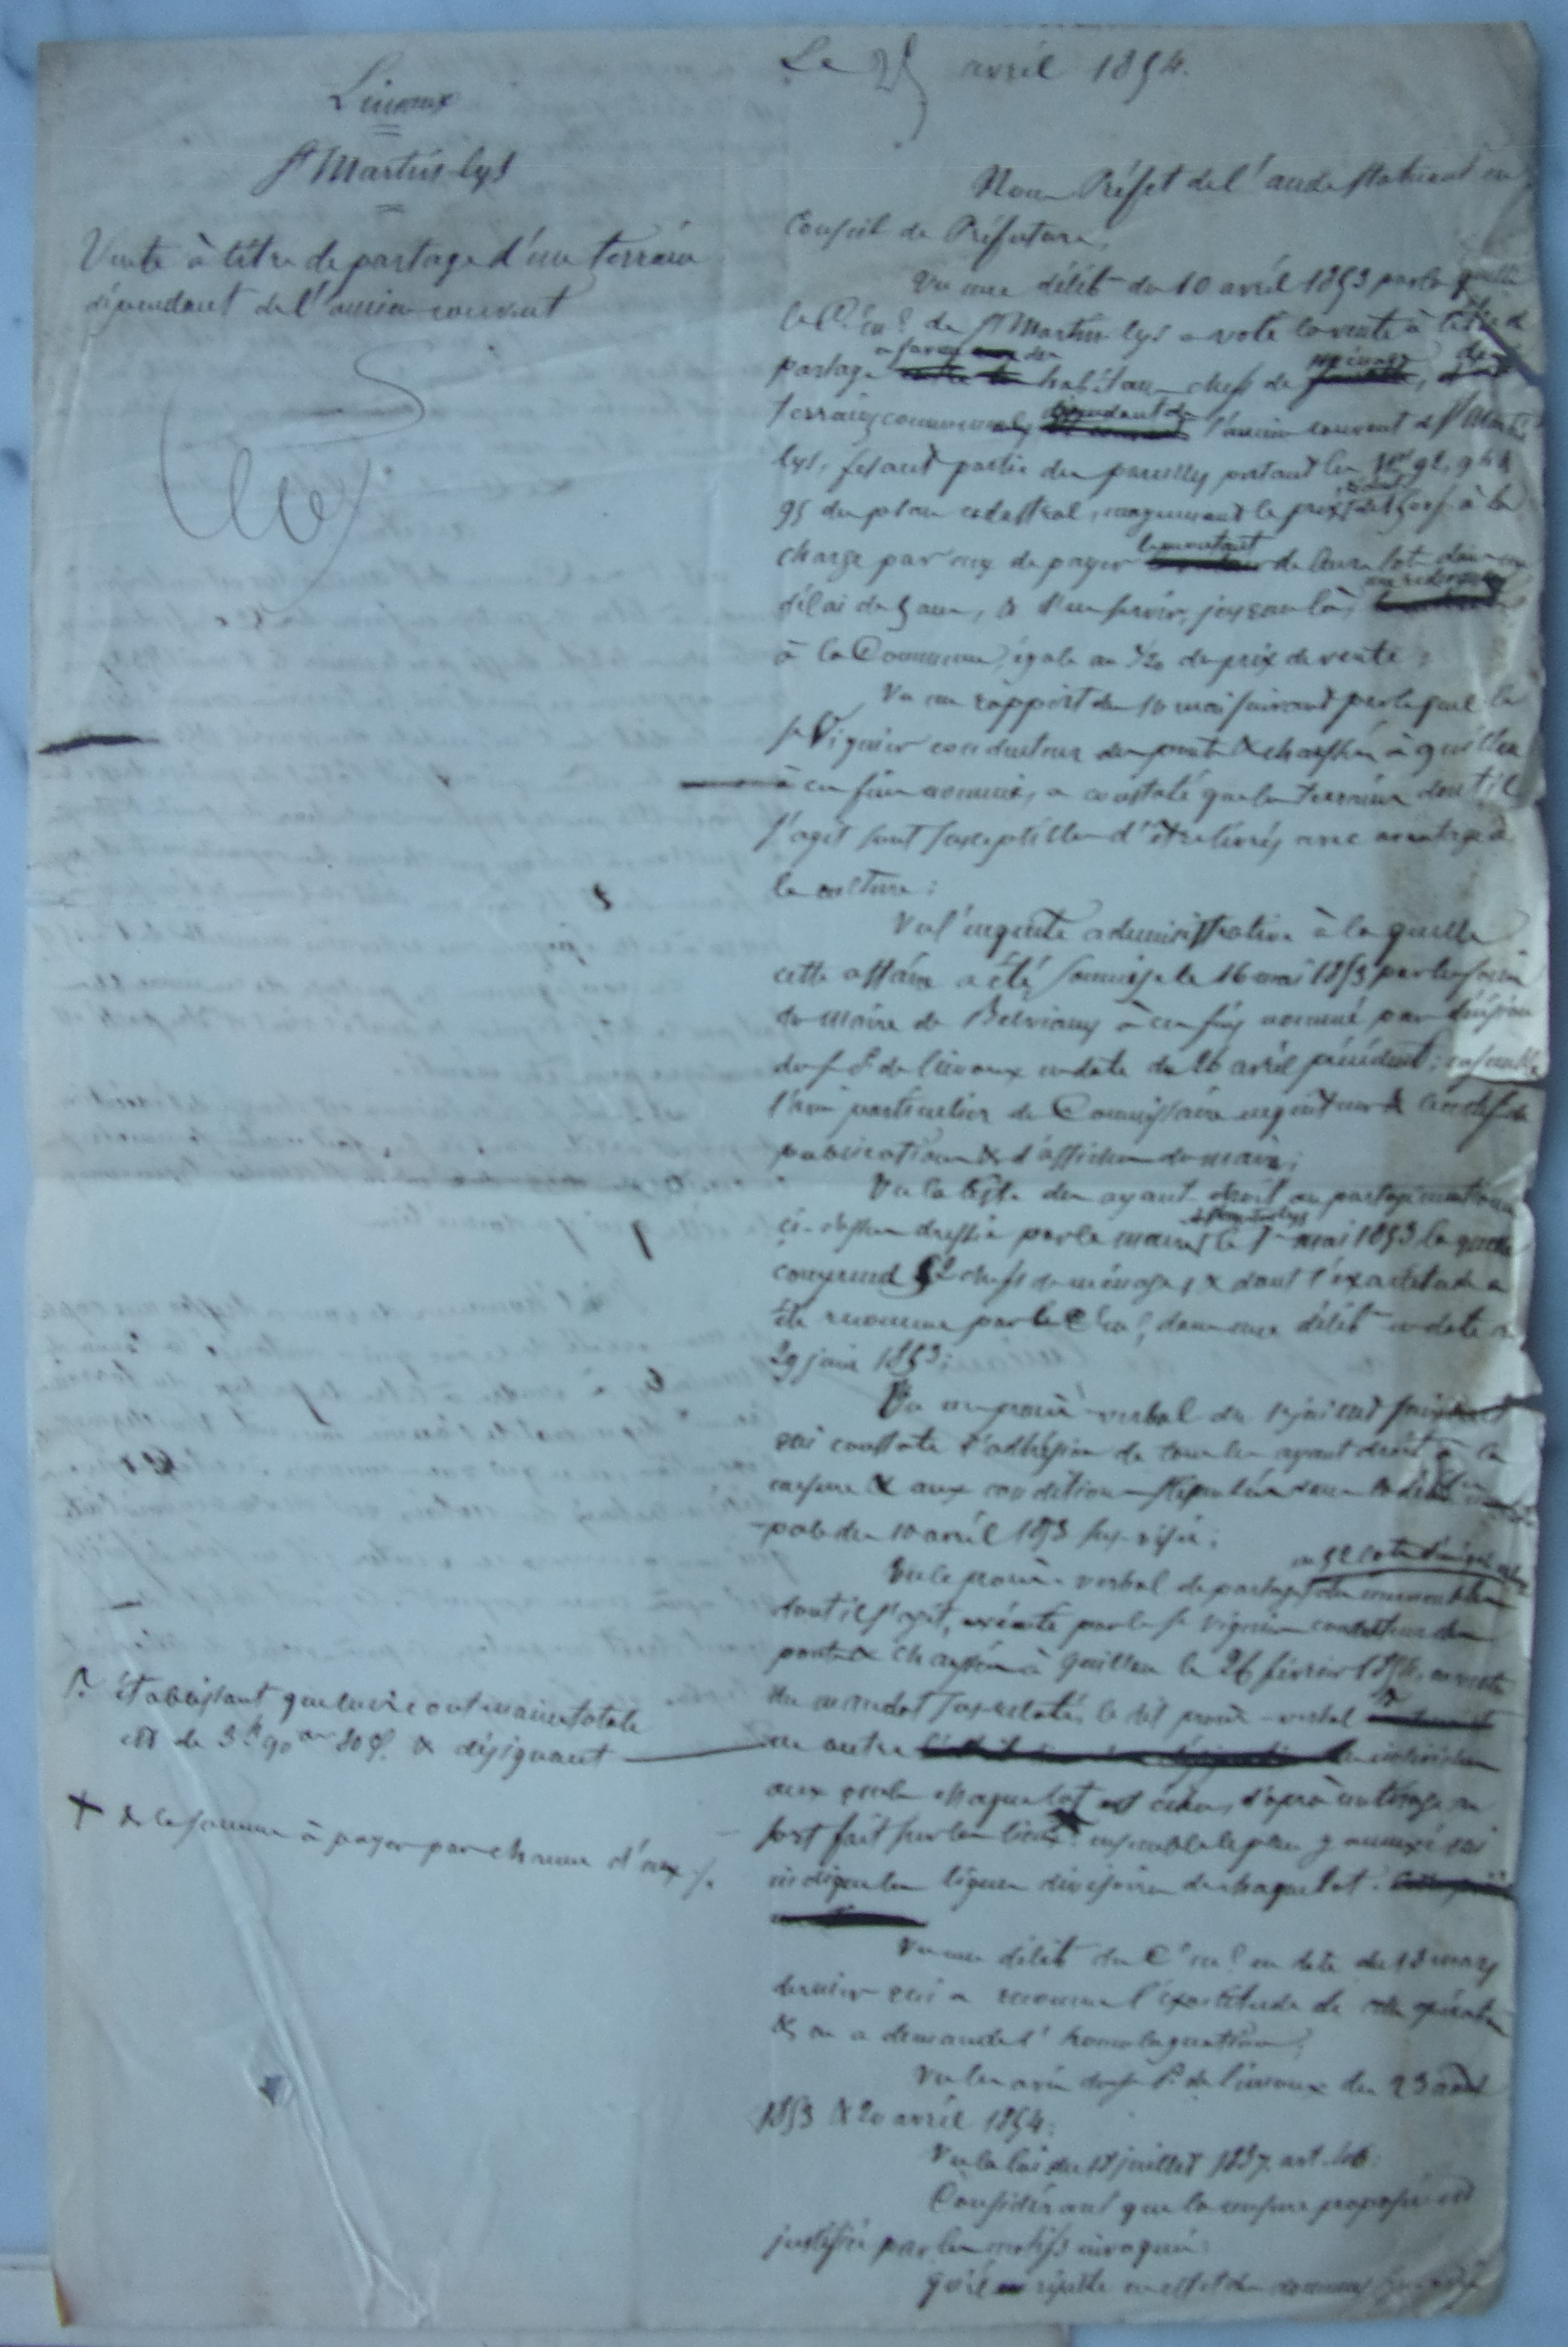 Le 25 avril 1854.
Limoux
St Martin-lys
Vente à titre de partage d'un terrain
dépendant de l'ancien couvent
Nous Préfet de l'aude statuant en
Conseil de Préfecture,
Vu une délib^on du 10 avril 1853 par laquelle
le C^l m^al de St Martin-lys a voté la vente à titre de
partage en faveur des habitans chefs de ménage, des
terrains communaux dépendant de l'ancien couvent de St Martin
lys, fesant partie des parcelles portant les N^os 92, 94 &
95 du plan cadastral, moyennant le prix de
charge par eux de payer le montant de leur lot dans un
délai de 5 ans, & d'en servir, jusques là, une redevance
à la Commune, égale au 1/20 du prix de vente;
Vu un rapport du 10 mai suivant par lequel le
Sr Viguier conducteur des ponts & chaussées à quillan
à ces fins commis, a constaté que les terrains dont il
s'agit sont susceptibles d'être livrés avec avantage à
la culture;
Vu l'enquête administrative à laquelle
cette affaire a été soumise le 16 mai 1853 par les soins
du maire de Belvianes à ces fins nommé par décision
du s. P. de limoux en date du 26 avril précédent; ensemble
l'avis particulier du Commissaire enquêteur & le certif. de
publication & d'affiches du maire;
Vu la liste des ayant-droit au partage mentionné
ci-dessus dressée par le maire de St Martin lys le 1er mai 1853 laquelle
comprend 52 chefs de ménage, & dont l'exactitude a
été reconnue par le C^l m^al, dans une délib^on en date du
29 juin 1853;
Vu un procès-verbal du 1er juillet suivant
qui constate l'adhésion de tous les ayant droit à la
mesure & aux conditions stipulées dans la délib^on
-pale du 10 avril 1853 sus-visée;
Vu le procès-verbal de partage en 52 lots des immeubles
dont il s'agit, exécuté par le Sr Viguier conducteur des
ponts & chaussées à Quillan le 26 février 1854, en vertu
du mandat sus-relaté, le dit procès-verbal
établissant que leur contenance totale
est de 3h 90 ares 80 c. & désignant
en outre les individus
aux quels chaque lot est échu, d'après un tirage au
sort fait sur les lieux; ensemble le plan y annexé qui
indique les lignes divisoires de chaque lot.
+ & la somme à payer par chacun d'eux ;.
Vu une délib^on du C^l m^al en date du 18 mars
dernier qui a reconnu l'exactitude de cette opération
& en a demandé l'homologuation;
Vu les avis du s. P. de limoux des 23 août
1853 & 20 avril 1854;
Vu la loi du 18 juillet 1837. art. 46;
Considérant que la mesure proposée est
justifiée par les motifs invoqués;
Qu'il résulte en effet des